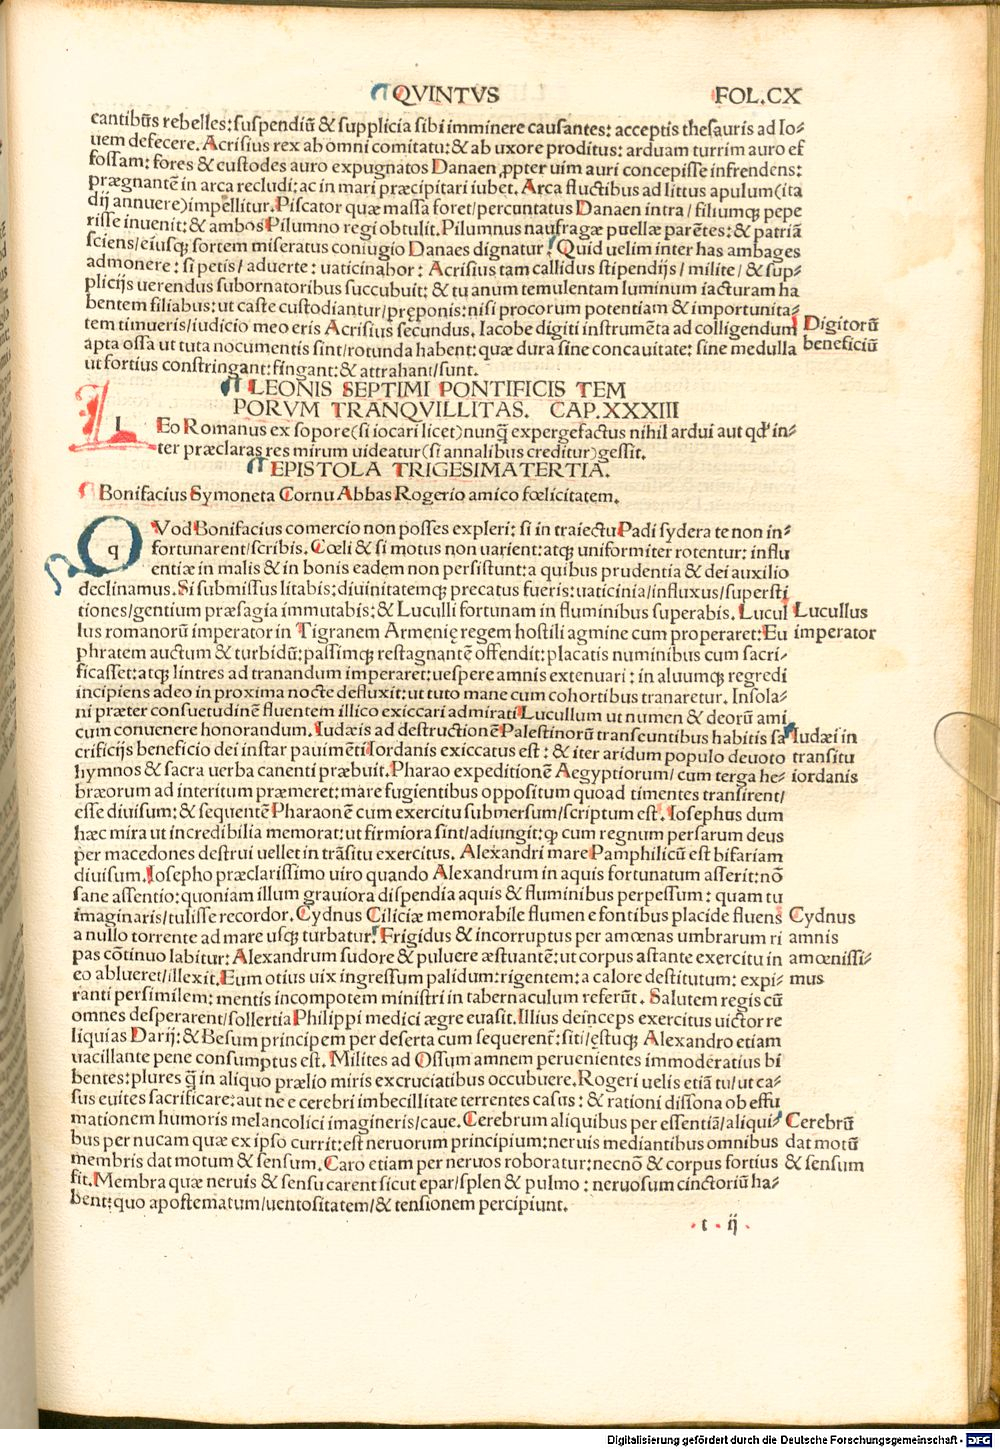 QVINTVS FOL.CX
cantibus rebelles: suspendiũ & supplicia sibi imminere causantes: acceptis thesauris ad Io⸗
uem defecere. Acrisius rex ab omni comitatu: & ab uxore proditus: arduam turrim auro ef
fossam: fores & custodes auro expugnatos Danaen ꝓpter uim auri concepisse infrendens:
prægnantẽ in arca recludi: ac in mari præcipitari iubet. Arca fluctibus ad littus apulum (ita
dij annuere) impellitur. Piscator quæ massa foret/ percuntatus Danaen intra/ filiumqꝫ pepe
risse inuenit: & ambos Pilumno regi obtulit. Pilumnus naufragæ puellæ parẽtes: & patriã
sciens/ eiusqꝫ sortem miseratus coniugio Danaes dignatur. Quid uelim inter has ambages
admonere: si petis/ aduerte: uaticinabor: Acrisius tam callidus stipendijs/ milite/ & sup⸗
plicijs uerendus subornatoribus succubuit: & tu anum temulentam luminum iacturam ha
bentem filiabus: ut caste custodiantur/ pręponis: nisi procorum potentiam & importunita⸗
tem timueris/ iudicio meo eris Acrisius secundus. Iacobe digiti instrumẽta ad colligendum
Digitorũ
apta ossa ut tuta nocumentis sint/ rotunda habent: quæ dura sine concauitate: sine medulla
beneficiũ
ut fortius constringant: fingant: & attrahant/ sunt.
LEONIS SEPTIMI PONTIFICIS TEM
PORVM TRANQVILLITAS. CAP.XXXIII
l Eo Romanus ex sopore (si iocari licet) nunq̃ expergefactus nihil ardui aut qđ in⸗
ter præclaras res mirum uideatur (si annalibus creditur) gessit.
EPISTOLA TRIGESIMATERTIA.
Bonifacius Symoneta Cornu Abbas Rogerio amico fœlicitatem.
q Vod Bonifacius comercio non posses expleri: si in traiectu Padi sydera te non in⸗
fortunarent/ scribis. Cœli & si motus non uarient: atqꝫ uniformiter rotentur: influ
entiæ in malis & in bonis eadem non persistunt: a quibus prudentia & dei auxilio
declinamus. Si submissus litabis: diuinitatemqꝫ precatus fueris: uaticinia/ influxus/ supersti
tiones/ gentium præsagia immutabis: & Luculli fortunam in fluminibus superabis. Lucul
Lucullus
lus romanorũ imperator in Tigranem Armenię regem hostili agmine cum properaret: Eu
imperator
phratem auctum & turbidũ: passimqꝫ restagnantẽ offendit: placatis numinibus cum sacri⸗
ficasset: atqꝫ lintres ad tranandum imperaret: uespere amnis extenuari: in aluumqꝫ regredi
incipiens adeo in proxima nocte defluxit: ut tuto mane cum cohortibus tranaretur. Insola⸗
ni præter consuetudinẽ fluentem illico exiccari admirati Lucullum ut numen & deorũ ami
cum conuenere honorandum. Iudæis ad destructionẽ Palestinorũ transeuntibus habitis sa
Iudæi in
crificijs beneficio dei instar pauimẽti Iordanis exiccatus est: & iter aridum populo deuoto
transitu
hymnos & sacra uerba canenti præbuit. Pharao expeditionẽ Aegyptiorum/ cum terga he⸗
iordanis
bræorum ad interitum præmeret: mare fugientibus oppositum quoad timentes transirent/
esse diuisum: & sequentẽ Pharaonẽ cum exercitu submersum/ scriptum est. Iosephus dum
hæc mira ut incredibilia memorat: ut firmiora sint/ adiungit: ꝙ cum regnum persarum deus
per macedones destrui uellet in trãsitu exercitus. Alexandri mare Pamphilicũ est bifariam
diuisum. Iosepho præclarissimo uiro quando Alexandrum in aquis fortunatum asserit: nõ
sane assentio: quoniam illum grauiora dispendia aquis & fluminibus perpessum: quam tu
imaginaris/ tulisse recordor. Cydnus Ciliciæ memorabile flumen e fontibus placide fluens
Cydnus
a nullo torrente ad mare usqꝫ turbatur. Frigidus & incorruptus per amœnas umbrarum ri
amnis
pas cõtinuo labitur: Alexandrum sudore & puluere æstuantẽ: ut corpus astante exercitu in
amœnissi⸗
eo ablueret/ illexit. Eum otius uix ingressum palidum: rigentem: a calore destitutum: expi⸗
mus
ranti persimilem: mentis incompotem ministri in tabernaculum referũt. Salutem regis cũ
omnes desperarent/ sollertia Philippi medici ægre euasit. Illius deinceps exercitus uictor re
liquias Darij: & Besum principem per deserta cum sequerent̃: siti/ ęstuqꝫ Alexandro etiam
uacillante pene consumptus est. Milites ad Ossum amnem peruenientes immoderatius bi
bentes: plures q̃ in aliquo prælio miris excruciatibus occubuere. Rogeri uelis etiã tu/ ut ca⸗
sus euites sacrificare: aut ne e cerebri imbecillitate terrentes casus: & rationi dissona ob effu
mationem humoris melancolici imagineris/ caue. Cerebrum aliquibus per essentiã/ aliqui⸗
Cerebrũ
bus per nucam quæ ex ipso currit: est neruorum principium: neruis mediantibus omnibus
dat motũ
membris dat motum & sensum. Caro etiam per neruos roboratur: necnõ & corpus fortius
& sensum
fit. Membra quæ neruis & sensu carent sicut epar/ splen & pulmo: neruosum cinctoriũ ha⸗
bent: quo apostematum/ uentositatem/ & tensionem percipiunt.
t ij
Digitalisierung gefördert durch die Deutsche Forschungsgemeinschaft - DFG